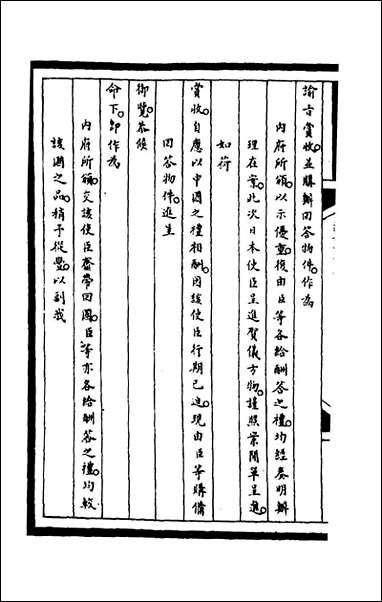 諭旨賞收。並購辦回答物件。作為
內府所頒。以示優重。復由臣等各給酬答之禮。均經奏明辦
理在案。此次日本使臣呈進賀儀方物。謹照案開單呈進。
如荷
賞收。自應以中國之禮相酬。因該使臣行期已迫。現由臣等購備
回答物件。進呈
御覽。恭候
命下。即作為
內府所頒。交該使臣齎帶回國。臣等亦各給酬答之禮。均較
該國之品。稍予從豐。以副我